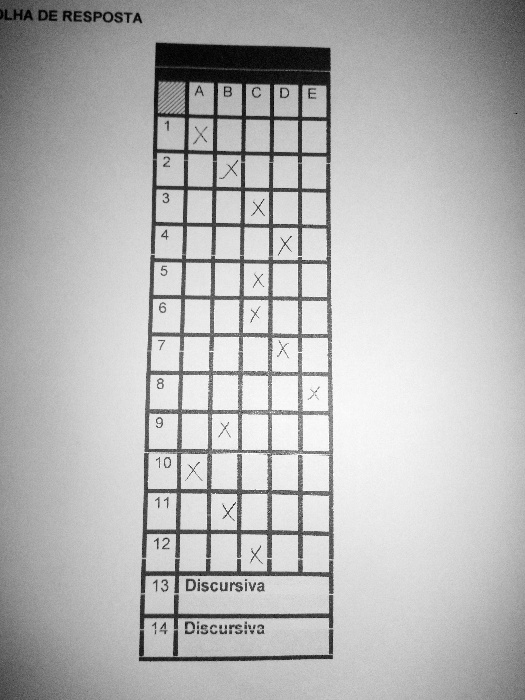 OLHA DE RESPOSTA
A B C D E
1 X
2 X
3 X
4 X
5 X
6 X
7 X
8 X
9 X
10 X
11 X
12 X
13 Discursiva
14 Discursiva